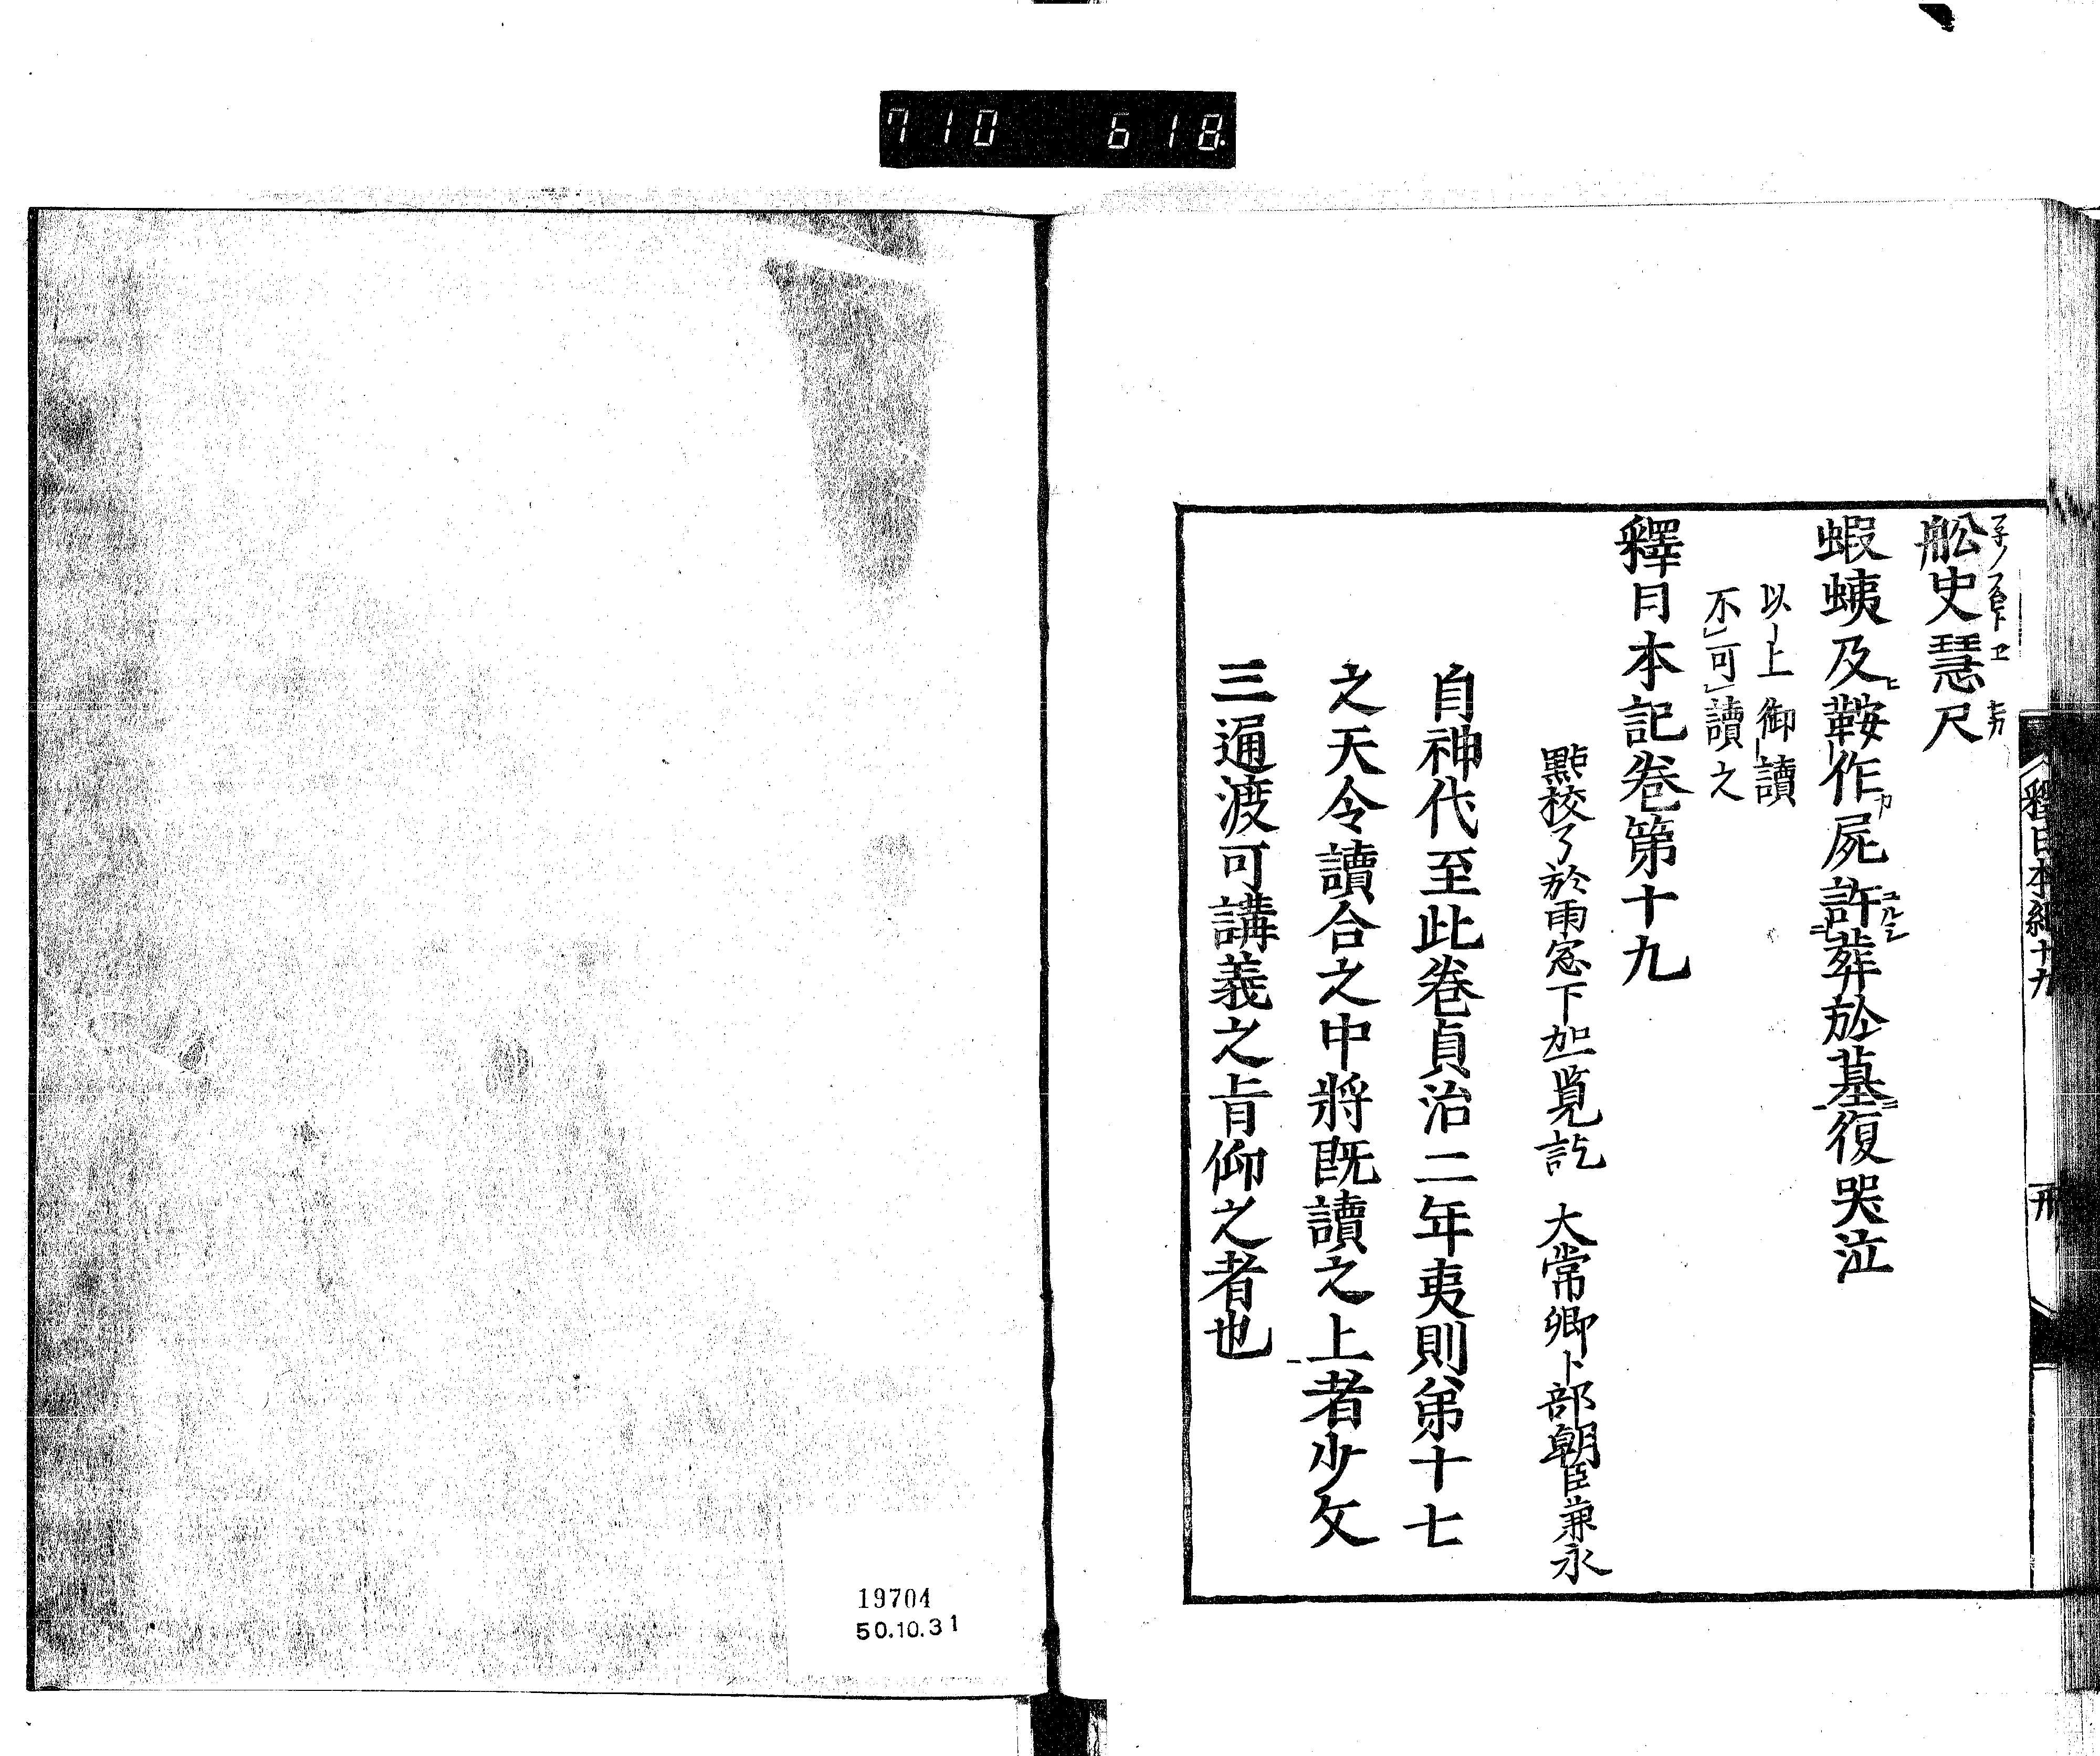 710 618
舩史慧尺
蝦蛦及鞍作屍許葬於墓復哭泣
以上御讀
不可讀之
釋日本記卷第十九
點校了於雨窓下加一覧訖 大常卿卜部朝臣兼永
自神代至此卷貞治二年夷則第十七
之天令讀合之中將既讀之上者少攵
三遍渡可講義之旨仰之者也
釋日本紀十九
19704
50.10.31